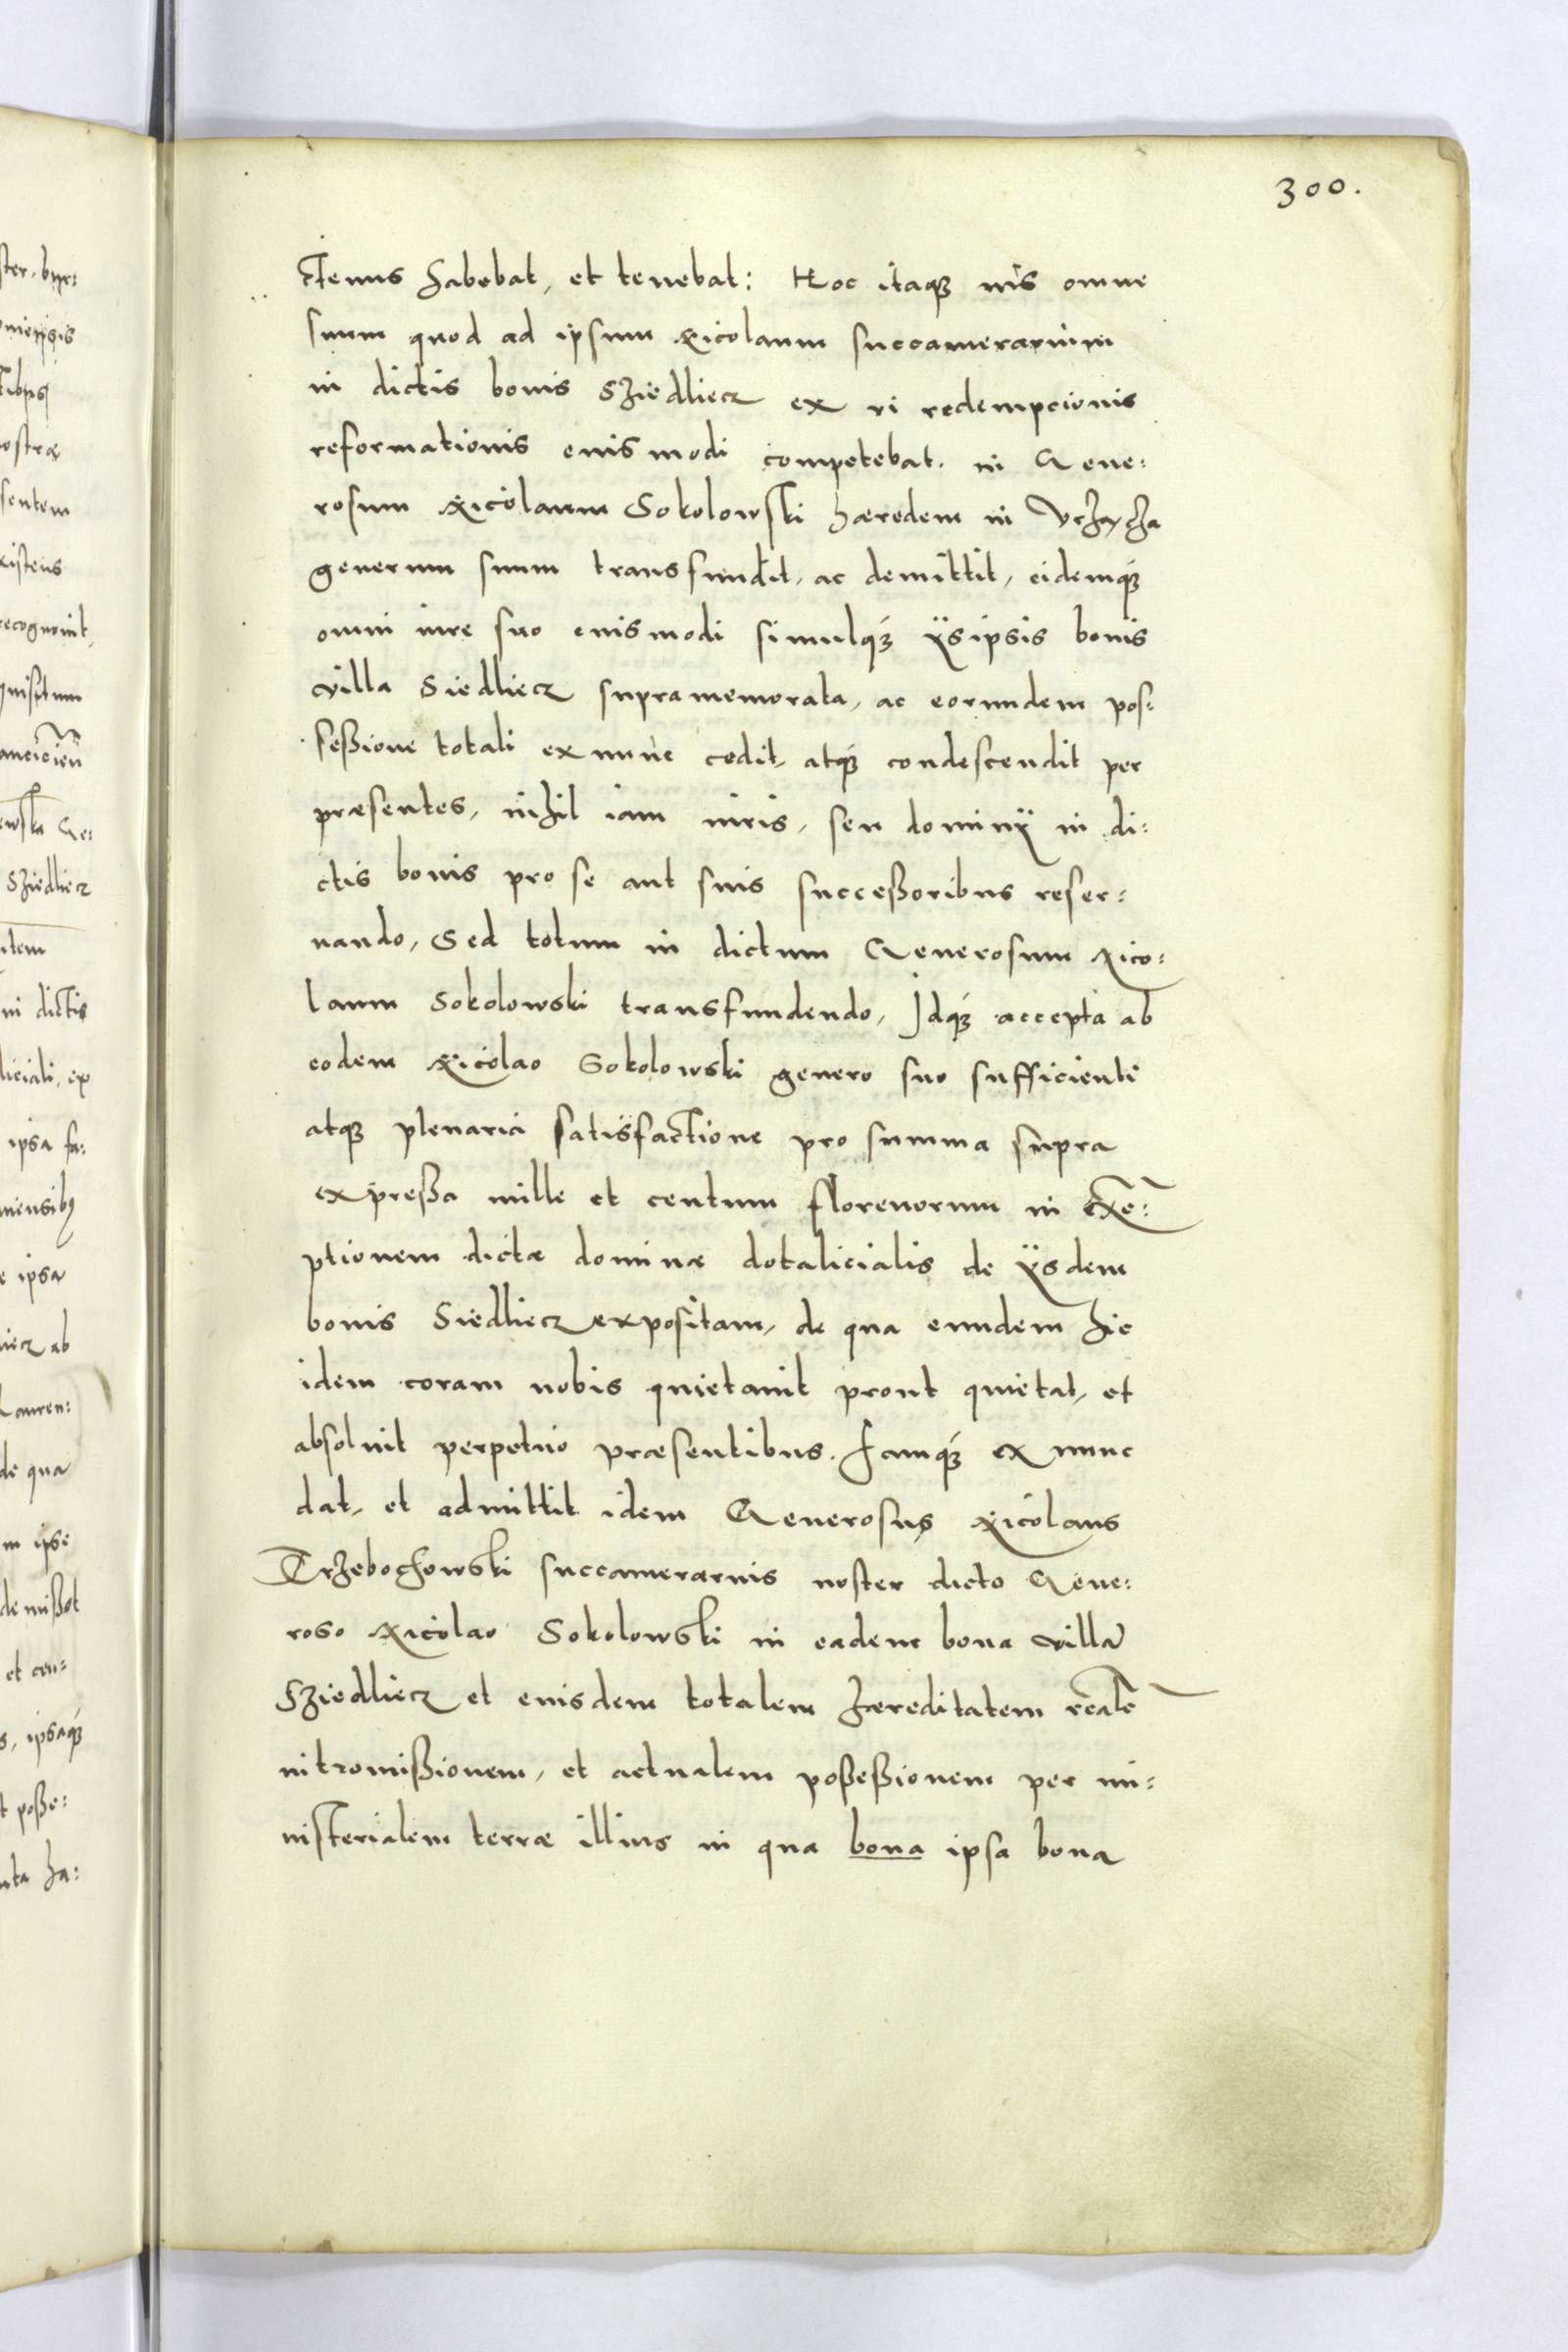 300.
ctenus habebat, et tenebat: Hoc itaque ius omne
suum quod ad ipsum Nicolaum succamerarium
in dictis bonis Sziedliecz ex vi redempcionis
reformationis euismodi competebat. in Gene:
rosum Nicolaum Sokolowski hæredem in
generum suum transfundit, ac demittit, eidemque
omni iure suo euismodi simulque ÿsipsis bonis
villa Siedliecz supramemorata, ac eorundem pos:
seßione totali ex nunc cedit, atque condescendit per
præsentes, nihil iam iuris, seu dominÿ in di:
ctis bonis pro se aut suis succeßoribus reser:
uando, Sed totum in dictum Generosum Nico:
laum Sokolowski transfundendo, Idque accepta ab
eodem Nicolao Sokolowski genero suo sufficienti
atque plenaria satisfactione pro summa supra
expreßa mille et centum florenorum in exe:
ptionem dictæ dominæ dotalicialis de ÿsdem
bonis Siedliecz expositam, de qua eundem hic
idem coram nobis quietauit prout quietat, et
absoluit perpetuo præsentibus. Iamque ex nunc
dat, et admittit idem Generosus Nicolaus
Trzebochowski succamerarius noster dicto Gene:
roso Nicolao Sokolowski in eadem bona villa
Sziedliecz et euisdem totalem hæreditatem reale
intromißionem, et actualem poßeßionem per mi:
nisterialem terræ illius in qua bona ipsa bona